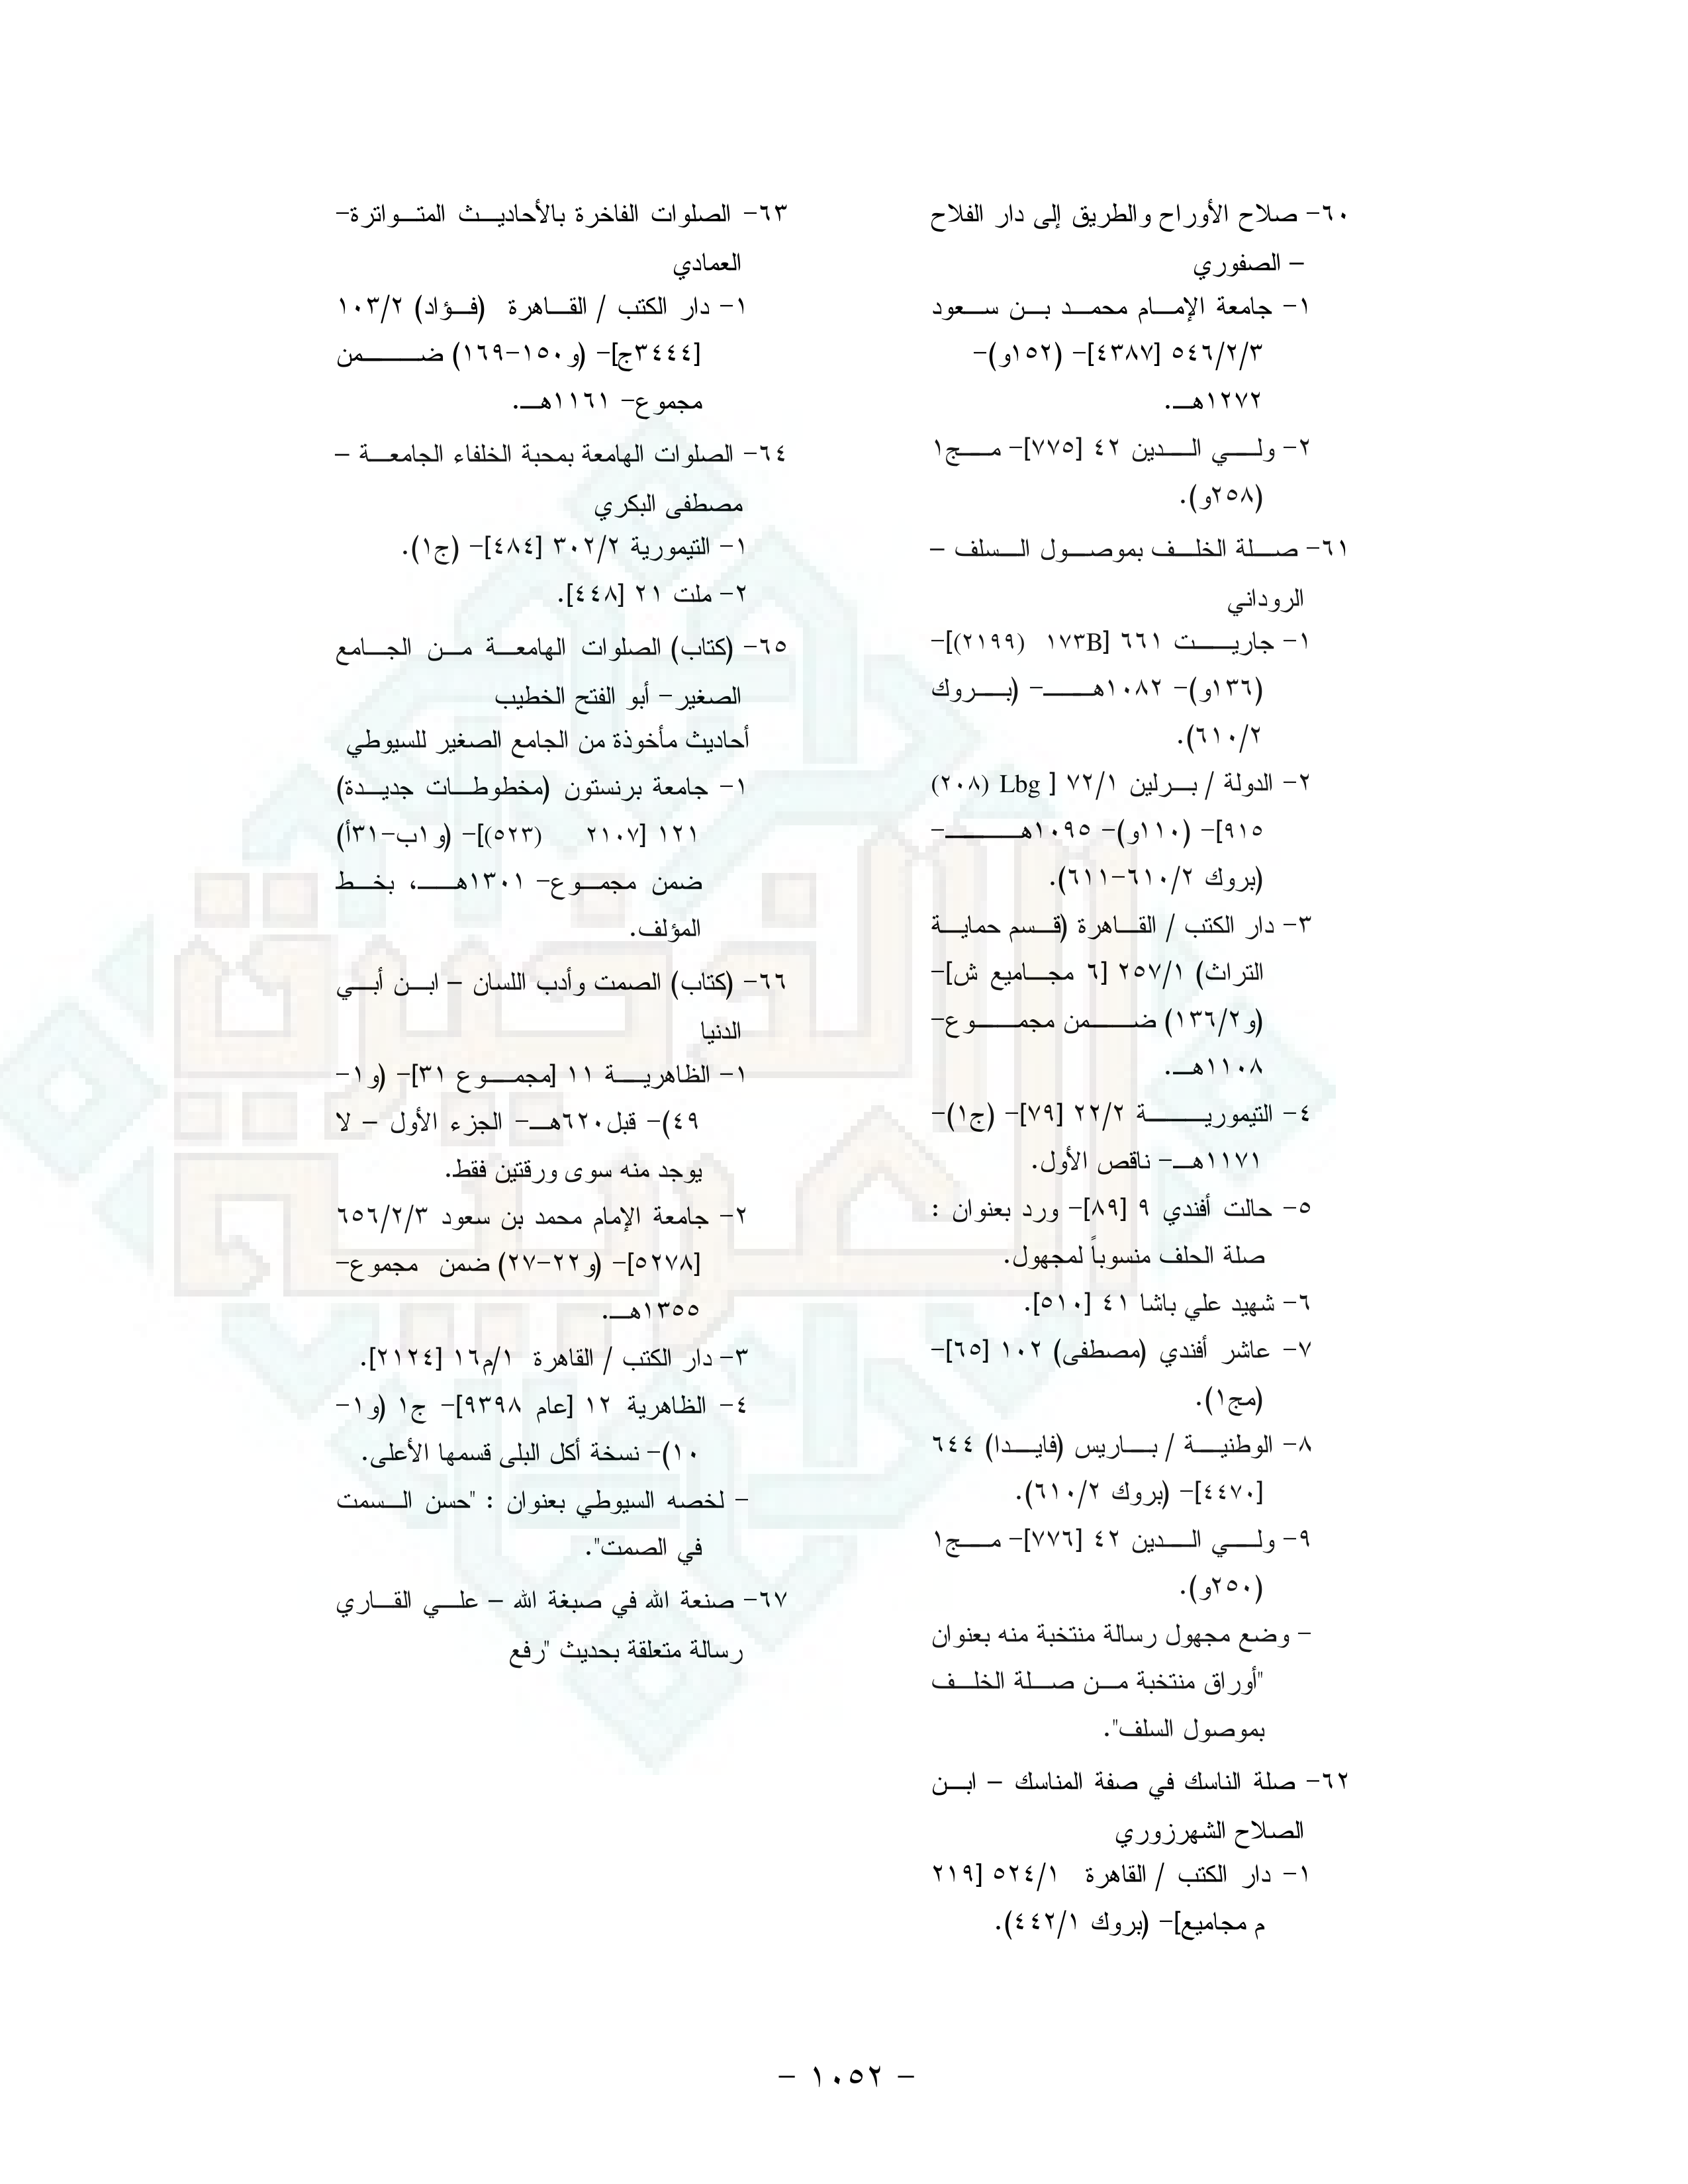 ٦٠- صلاح الأوراح والطريق إلى دار الفلاح
– الصفوري
١- جامعة الإمام محمد بن سعود
٥٤٦/٢/٣ [٤٣٨٧]- (١٥٢و)-
١٢٧٢هـ.
٢- ولي الدين ٤٢ [٧٧٥]- مج١
(٢٥٨و).
٦١- صلة الخلف بموصول السلف –
الروداني
١- جاريت ٦٦١ [١٧٣B (٢١٩٩)]-
(١٣٦و)- ١٠٨٢هـ- (بروك
٦١٠/٢).
٢- الدولة / برلين ٧٢/١ [ Lbg (٢٠٨)
٩١٥]- (١١٠و)- ١٠٩٥هـ-
(بروك ٦١٠/٢-٦١١).
٣- دار الكتب / القاهرة (قسم حماية
التراث) ٢٥٧/١ [٦ مجاميع ش]-
(و١٣٦/٢) ضمن مجموع-
١١٠٨هـ.
٤- التيمورية ٢٢/٢ [٧٩]- (ج١)-
١١٧١هـ- ناقص الأول.
٥- حالت أفندي ٩ [٨٩]- ورد بعنوان :
صلة الحلف منسوباً لمجهول.
٦- شهيد علي باشا ٤١ [٥١٠].
٧- عاشر أفندي (مصطفى) ١٠٢ [٦٥]-
(مج١).
٨- الوطنية / باريس (فايدا) ٦٤٤
[٤٤٧٠]- (بروك ٦١٠/٢).
٩- ولي الدين ٤٢ [٧٧٦]- مج١
(٢٥٠و).
- وضع مجهول رسالة منتخبة منه بعنوان
"أوراق منتخبة من صلة الخلف
بموصول السلف".
٦٢- صلة الناسك في صفة المناسك – ابن
الصلاح الشهرزوري
١- دار الكتب / القاهرة ٥٢٤/١ [٢١٩
م مجاميع]- (بروك ٤٤٢/١).
٦٣- الصلوات الفاخرة بالأحاديث المتواترة-
العمادي
١- دار الكتب / القاهرة (فؤاد) ١٠٣/٢
[٣٤٤٤ج]- (و١٥٠-١٦٩) ضمن
مجموع- ١١٦١هـ.
٦٤- الصلوات الهامعة بمحبة الخلفاء الجامعة –
مصطفى البكري
١- التيمورية ٣٠٢/٢ [٤٨٤]- (ج١).
٢- ملت ٢١ [٤٤٨].
٦٥- (كتاب) الصلوات الهامعة من الجامع
الصغير- أبو الفتح الخطيب
أحاديث مأخوذة من الجامع الصغير للسيوطي
١- جامعة برنستون (مخطوطات جديدة)
١٢١ [٢١٠٧ (٥٢٣)]- (و١ب-٣١أ)
ضمن مجموع- ١٣٠١هـ، بخط
المؤلف.
٦٦- (كتاب) الصمت وأدب اللسان – ابن أبي
الدنيا
١- الظاهرية ١١ [مجموع ٣١]- (و١-
٤٩)- قبل٦٢٠هـ- الجزء الأول – لا
يوجد منه سوى ورقتين فقط.
٢- جامعة الإمام محمد بن سعود ٦٥٦/٢/٣
[٥٢٧٨]- (و٢٢-٢٧) ضمن مجموع-
١٣٥٥هـ.
٣- دار الكتب / القاهرة ١/م١٦ [٢١٢٤].
٤- الظاهرية ١٢ [عام ٩٣٩٨]- ج١ (و١-
١٠)- نسخة أكل البلى قسمها الأعلى.
- لخصه السيوطي بعنوان : "حسن السمت
في الصمت".
٦٧- صنعة الله في صبغة الله – علي القاري
رسالة متعلقة بحديث "رفع
- ١٠٥٢ -